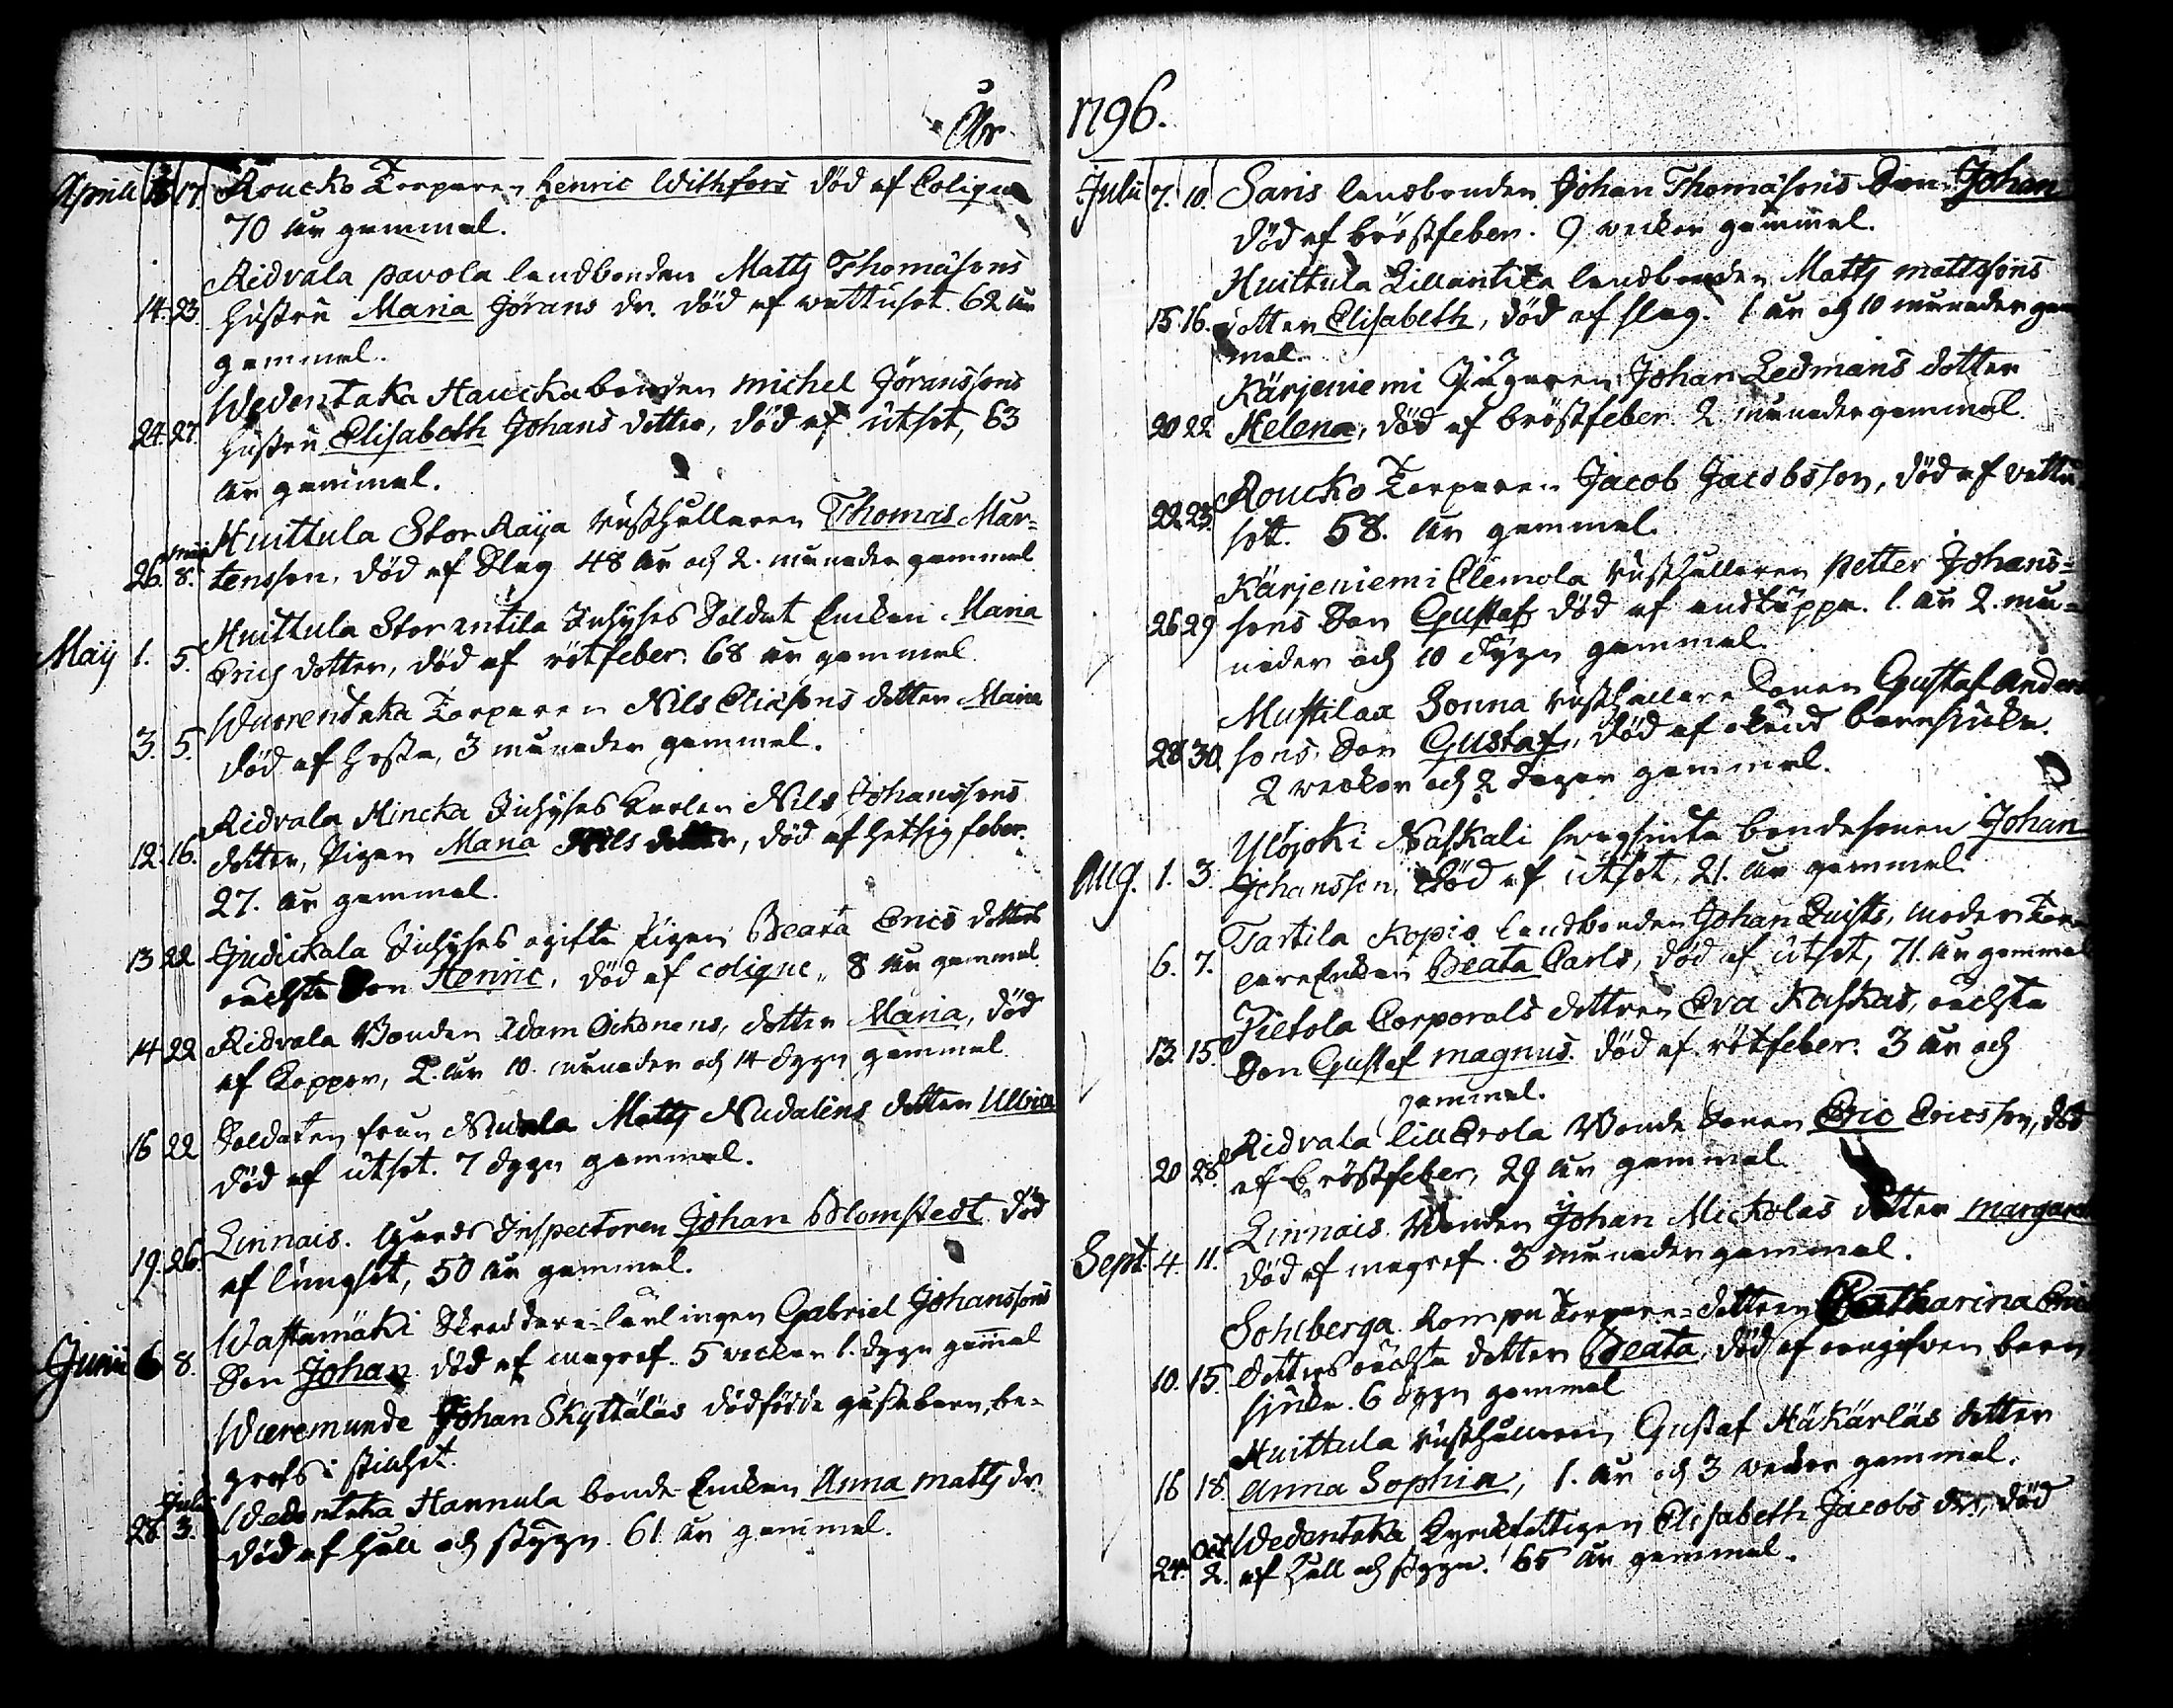 År
Aprill 13 17. Roucko Torparen Henric Withfors död af Colique
70 år gammal.
Ridvala Pavola landbonden Matts Thomæsons
14. 23 hustru Maria Jörans dr. död af wattusot. 62 år
gammal.
Wedentaka Hauckabonden Michel Jöranssons
24. 27. hustru Elisabeth Johans dotter, död af utsot, 63
år gammal.
Huittula Stor Raija rusthållaren Thomas Mår-
26. Maij 8. tensson, död af Slag 48 år och 2. månader gammal
Huittula Storantila Inhyses Soldat Enkan Maria
Maij 1. 5. Erics dotter, död af rötfeber. 68 år gammal.
Wuorentaka Torparen Nils Eliæsons dotter Maria
3. 5. död af hosta, 3 månader gammal.
Ridvala Mincka Inhyses Karlen Nils Johanssons
12. 16. dotter, Pigan Maria Nils dotter, död af hetsig feber.
27. år gammal.
13 22 Judickala Inhyses ogifta Pigan Beata Erics dotters
oächta Son Henric, död af colique, 8 år gammal
14 22 Ridvala Bonden Adam Oickonens, dotter Maria, död
af Koppor, 2. år 10. månader och 14 dygn gammal
16 22 Soldaten från Matts Nudalins dotter Ulrica
död af utsot. 7 dygn gammal.
19. 26. Linnais. Gårds Inspectoren Johan Blomstedt död
af lungsot, 50 år gammal.
Wastamäki Skräddare-lärlingen Gabriel Johanssons
Junii 6 8. Son Johan död af magref. 5 veckor 1. dygn gamal
Wæremunde Johan Skyttäläs dödfödde gossebarn, be-
grofs i stillhet.
Wedentaka Hannula bonde-Enkan Anna Matts dr.
28. Julii 3. död af håll och styng. 61. år gammal.
1796.
Julii 7. 10. Saris landbonden Johan Thomæsons Son Johan
död af bröstfeber. 9 veckor gammal.
Huittula Lillantila landbonden Matts Mattssons
15 16. dotter Elisabeth, död af slag. 1 år och 10 månader gam
mal.
Kärjeniemi Johan Ledmans dotter
20 22 Helena, död af bröstfeber 2 månader gammal.
22. 23. Roucko Torparen Jacob Jacobsson, död af vattu-
sot. 58. år gammal.
Kärjeniemi Clemola Rusthållaren Petter Johans-
26 29 sons Son Gustaf död af andtäppa. 1. år 2. må-
nader och 10 dygn gammal.
Mustilax Sonna rusthållare Sonen Gustaf Anders
28 30. sons, Son Gustaf, död af okänd barnsjuka.
2 veckor och 2 dagar gammal.
Ylöjoki Naskali bondesonen Johan
Aug. 1. 3. Johansson, död af utsot, 21. år gammal.
Tartila Kopis landbonden Johan Quists, moder Tor-
6. 7. pareEnkan Beata Carls, död af utsot, 71. år gammal
Pietola Corporals dottren Eva Kaskas, oächta
13. 15. Son Gustaf Magnus. död af rötfeber. 3 år och
gammal.
Ridvala lill Erola Bonde Sonen Eric Ericsson, död
20 28. af Bröstfeber, 29 år gammal
Linnais Bonden Johan Mickolas dotter Margaret
Sept. 4. 11. död af magref. 3 månader gammal.
Sohlberga Rompu Torpare-dottren Catharina Erics
10. 15. dotters oächta dotter Beata, död af oangifven barn
sjuka. 6 dygn gammal
Huittula rusthållaren Gustaf Häkärläs dotter
16 18. Anna Sophia, 1. år och 3 veckor gammal.
Wedentaka Kyrkfattigen Elisabeth Jacobs dr., död
24. Oct 2. af håll och styng. 65 år gammal.